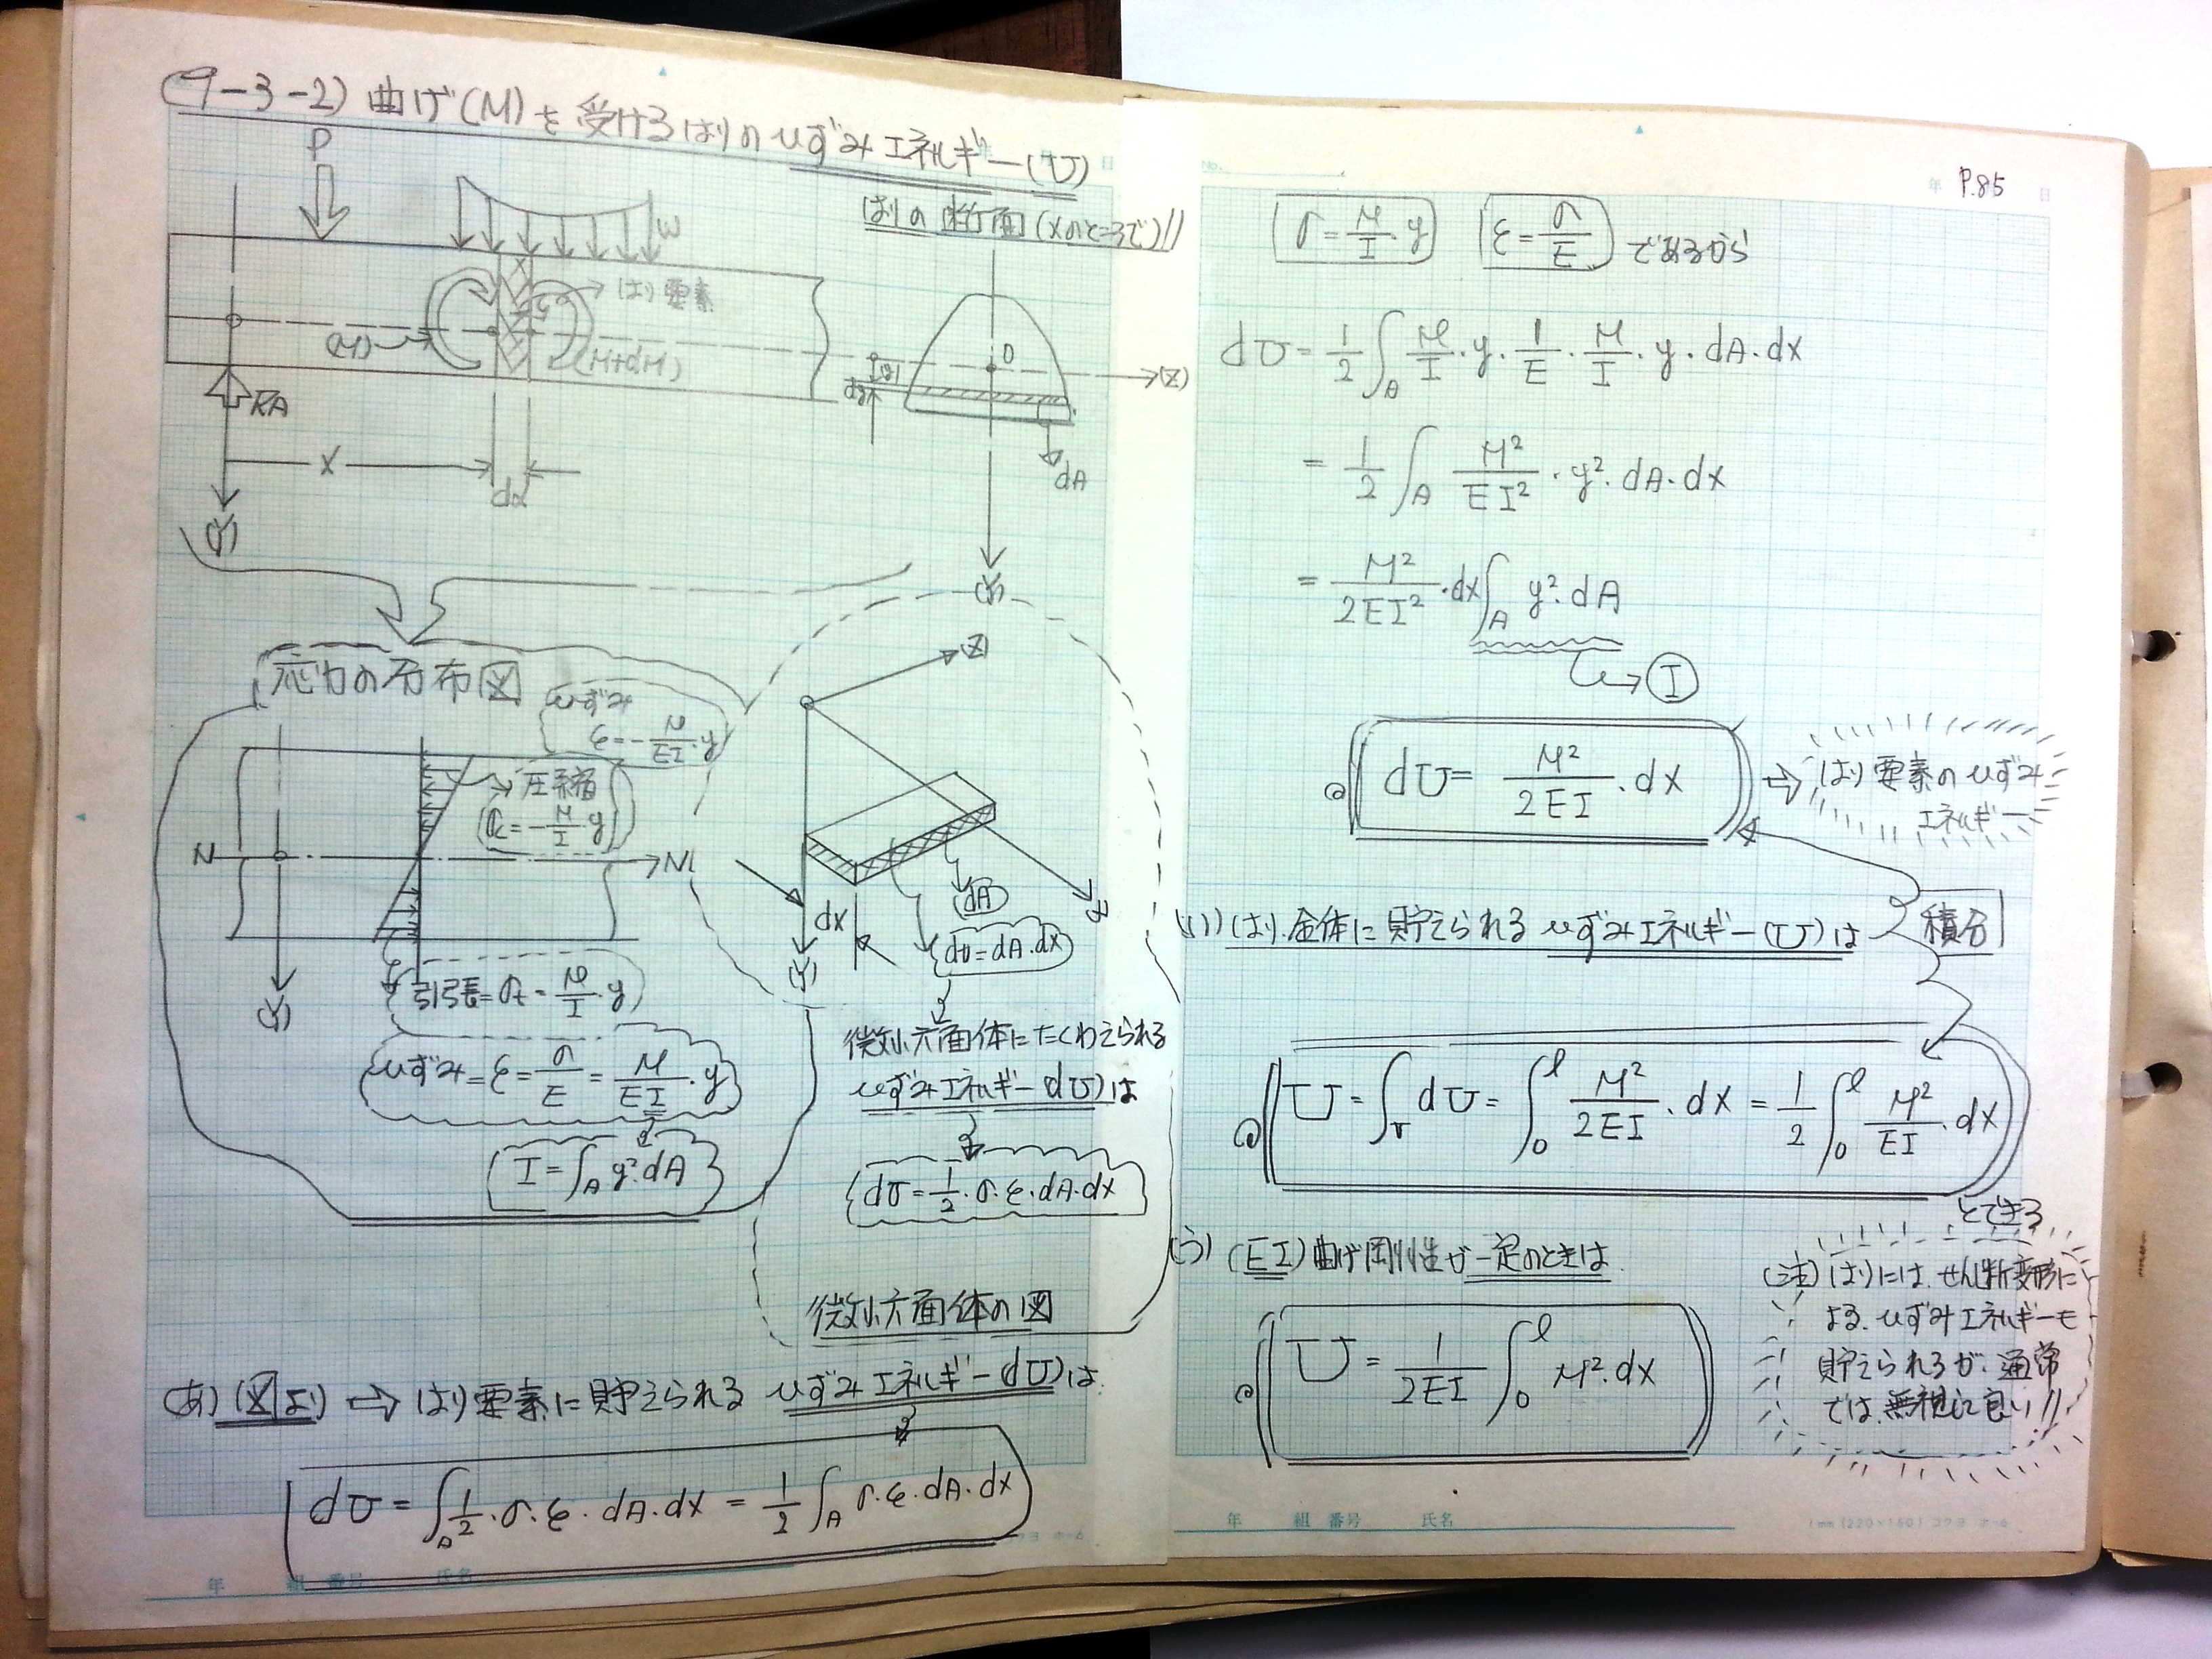 (9-3-2) 曲げ(M)を受けるはりのひずみエネルギー(U)
P
W
はりの断面(xのところで)//
はり要素
(M)
(M+dM)
RA
x
dx
(Y)
O
(Z)
dy
dA
(Y)
応力の分布図
ひずみ
ε=-M/EI・y
圧縮
σc=-M/I・y
N
N
(Y)
引張=σt=M/I・y
ひずみ=ε=σ/E=M/EI・y
I=∫A y²・dA
(Z)
dx
(dA)
x
(Y)
dv=dA・dx
微小六面体にたくわえられる
ひずみエネルギー(dU)は
dU=1/2・σ・ε・dA・dx
微小六面体の図
(あ) (図より) ⇨ はり要素に貯えられる ひずみエネルギー(dU)は
dU=∫A 1/2・σ・ε・dA・dx = 1/2∫A σ・ε・dA・dx
年 組 番号 氏名
No.
年 P.85 日
σ=M/I・y ε=σ/E であるから
dU=1/2∫A M/I・y・1/E・M/I・y・dA・dx
=1/2∫A M²/EI²・y²・dA・dx
=M²/2EI²・dx∫A y²・dA
→ I
dU=M²/2EI・dx ⇨ はり要素のひずみ
エネルギー
(い) はり全体に貯えられる ひずみエネルギー(U)は
積分
U=∫v dU=∫0 l M²/2EI・dx=1/2∫0 l M²/EI・dx
とできる
(う) (EI)曲げ剛性が一定のときは
U=1/2EI∫0 l M²・dx
(注) はりには、せん断変形に
よる、ひずみエネルギーも
貯えられるが、通常
では、無視して良い//
年 組 番号 氏名
1mm(220×160) コクヨ ホ-